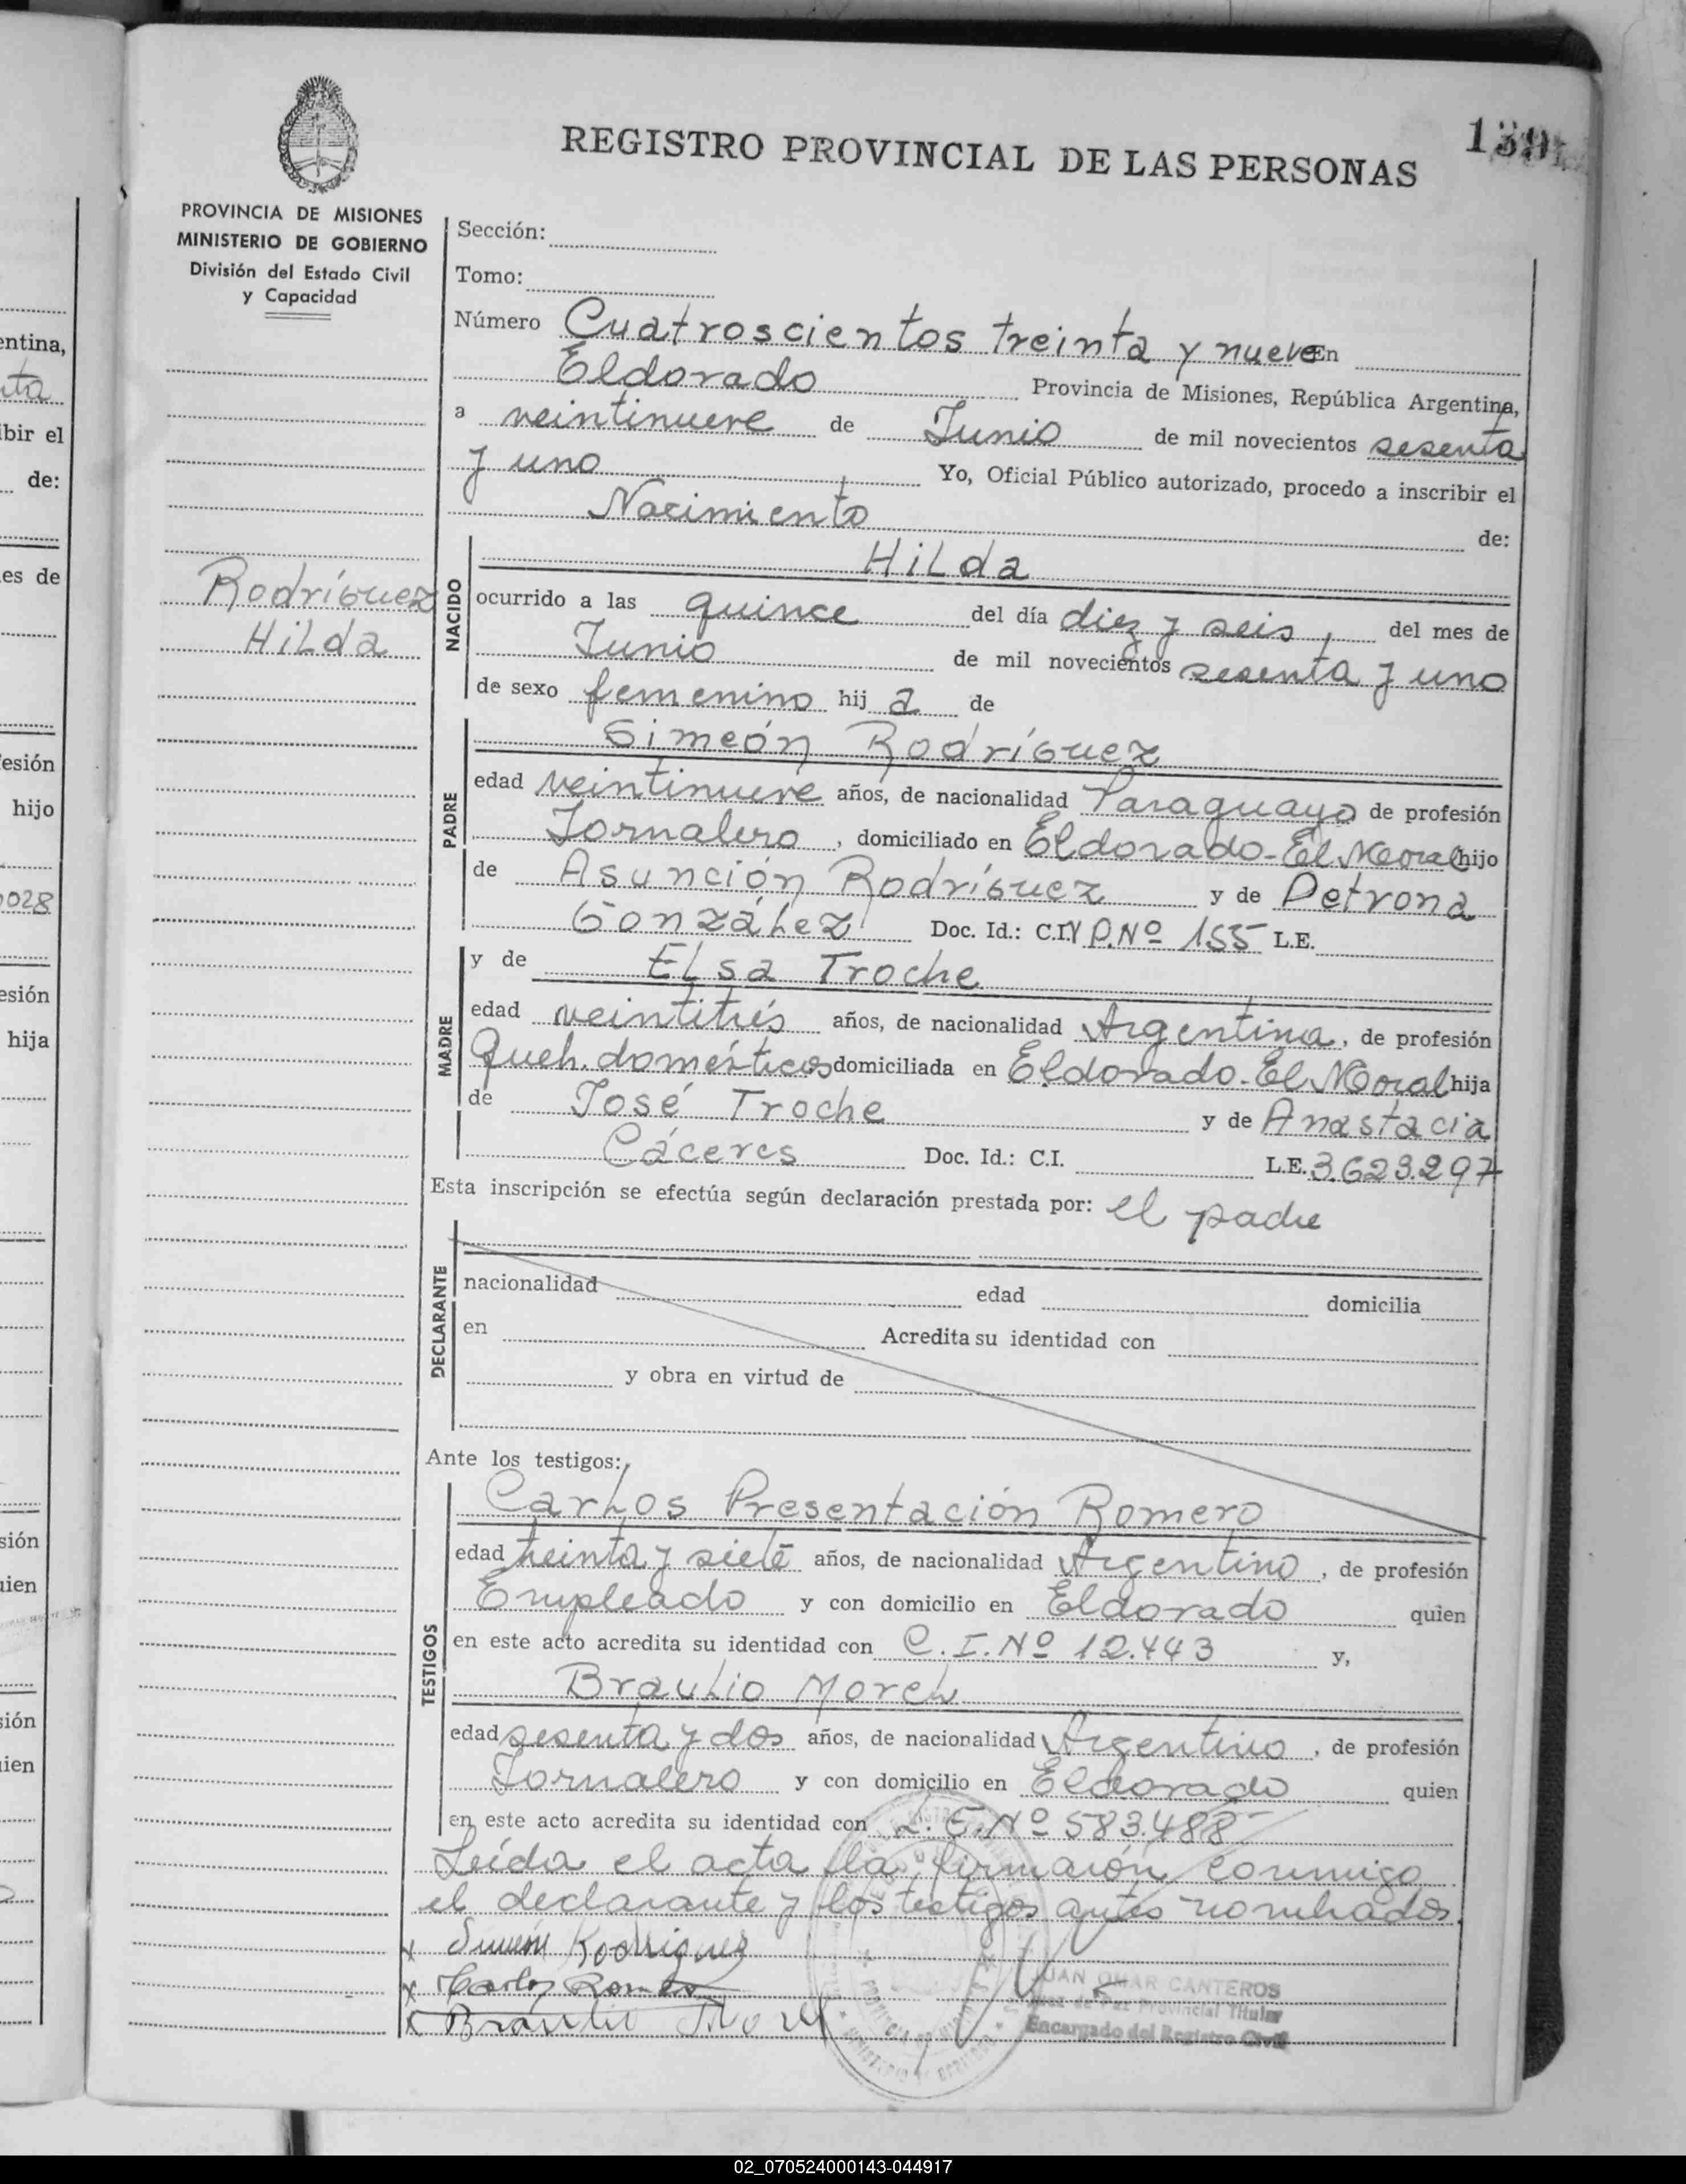 REGISTRO PROVINCIAL DE LAS PERSONAS
PROVINCIA DE MISIONES
MINISTERIO DE GOBIERNO
División del Estado Civil
y Capacidad
Sección:
Tomo:
Número Cuatroscientos treinta y nueve En
Eldorado Provincia de Misiones, República Argentina,
a veintinueve de Junio de mil novecientos sesenta
y uno Yo, Oficial Público autorizado, procedo a inscribir el
Nacimiento de:
Rodríguez
Hilda
NACIDO
Hilda
ocurrido a las quince del día diez y seis, del mes de
Junio de mil novecientos sesenta y uno
de sexo femenino hij a de
PADRE
Simeón Rodríguez
edad veintinueve años, de nacionalidad Paraguayo de profesión
Jornalero, domiciliado en Eldorado-El Moral hijo
de Asunción Rodríguez y de Petrona
González Doc. Id.: C.I. P.Nº 155 L.E.
MADRE
y de Elsa Troche
edad veintitrés años, de nacionalidad Argentina, de profesión
Queh. domésticos domiciliada en Eldorado-El Moral hija
de José Troche y de Anastacia
Cáceres Doc. Id.: C.I. L.E. 3.623.297
Esta inscripción se efectúa según declaración prestada por: el padre
DECLARANTE
nacionalidad edad domicilia
en Acredita su identidad con
y obra en virtud de
Ante los testigos:
TESTIGOS
Carlos Presentación Romero
edad treinta y siete años, de nacionalidad Argentino, de profesión
Empleado y con domicilio en Eldorado quien
en este acto acredita su identidad con C.I.Nº 12.443 y,
Braulio Morel
edad sesenta y dos años, de nacionalidad Argentino, de profesión
Jornalero y con domicilio en Eldorado quien
en este acto acredita su identidad con L.E.Nº 583.488
Leída el acta la firmarón conmigo
el declarante y los testigos antes nombrados.
x Simeón Rodriguez
x Carlos Romero
x Braulio Morel
JUAN OMAR CANTEROS
Juez de Paz Provincial Titular
Encargado del Registro Civil
entina,
ibir el
de:
es de
esión
hijo
028
esión
hija
sión
uien
sión
ien
02_070524000143-044917